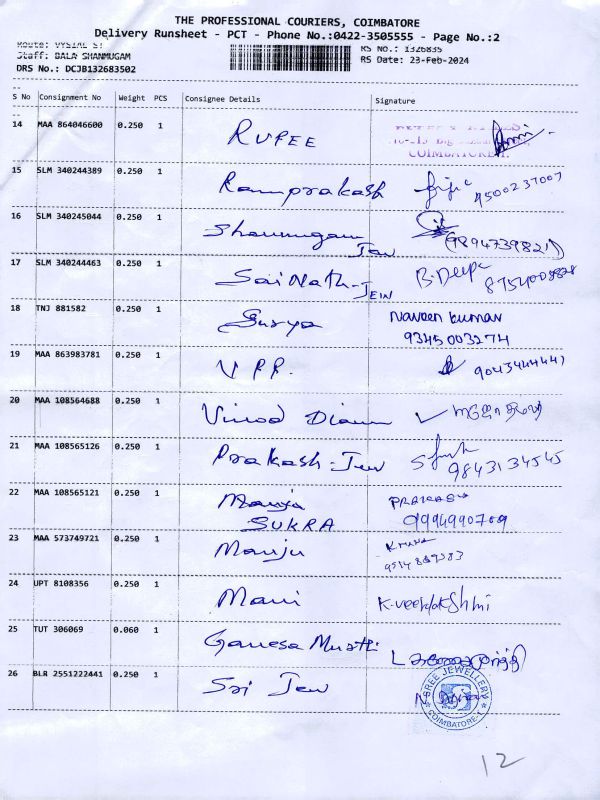 THE PROFESSIONAL COURIERS, COIMBATORE
Delivery Runsheet - PCT - Phone No.:0422-3505555 - Page No.:2
Route: VYSIAL ST RS No.: 1326835
Staff: BALA SHANMUGAM RS Date: 23-Feb-2024
DRS No.: DCJB132683502
S No Consignment No Weight PCS Consignee Details Signature
14 MAA 864046600 0.250 1 RUPEE
COIMBATORE-1.
15 SLM 340244389 0.250 1 Ramprakash 9500237007
16 SLM 340245044 0.250 1 Shanmugam
Jew (9894739821)
17 SLM 340244463 0.250 1 Sai Nath - B. Deepa
Jew
18 TNJ 881582 0.250 1 Surya Naveen kumar
9345003274
19 MAA 863983781 0.250 1 9043444447
20 MAA 108564688 0.250 1 Vinod Diamn
21 MAA 108565126 0.250 1 Prakash - Jew
9843134545
22 MAA 108565121 0.250 1 PRAKASH
SUKRA 9994990709
23 MAA 573749721 0.250 1 Manju
24 UPT 8108356 0.250 1 Mani
25 TUT 306069 0.060 1 Ganesa Murthi
26 BLR 2551222441 0.250 1 Sri Jew
SREE JEWELLERY
COIMBATORE-1
12